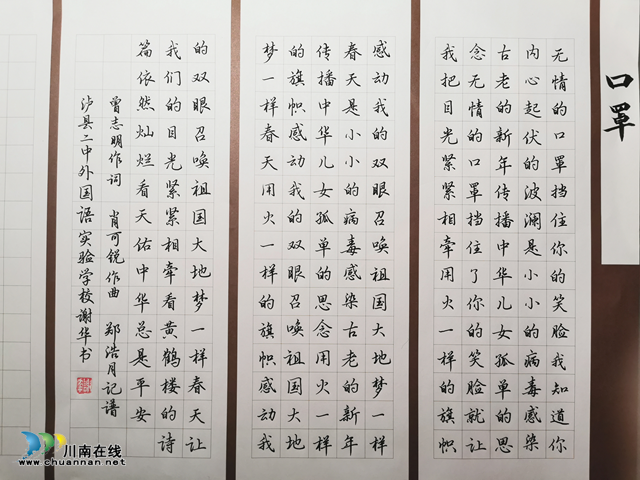 口罩
无情的口罩挡住你的笑脸我知道你
内心起伏的波澜是小小的病毒感染
古老的新年传播中华儿女孤单的思
念无情的口罩挡住了你的笑脸就让
我把目光紧紧相牵用火一样的旗帜
感动我的双眼召唤祖国大地梦一样
春天是小小的病毒感染古老的新年
传播中华儿女孤单的思念用火一样
的旗帜感动我的双眼召唤祖国大地
梦一样春天用火一样的旗帜感动我
的双眼召唤祖国大地梦一样春天让
我们的目光紧紧相牵看黄鹤楼的诗
篇依然灿烂看天佑中华总是平安
曾志明作词 肖可锐作曲 郑浩月记谱
泸县二中外国语实验学校谢华书
川南在线
www.chuannan.net